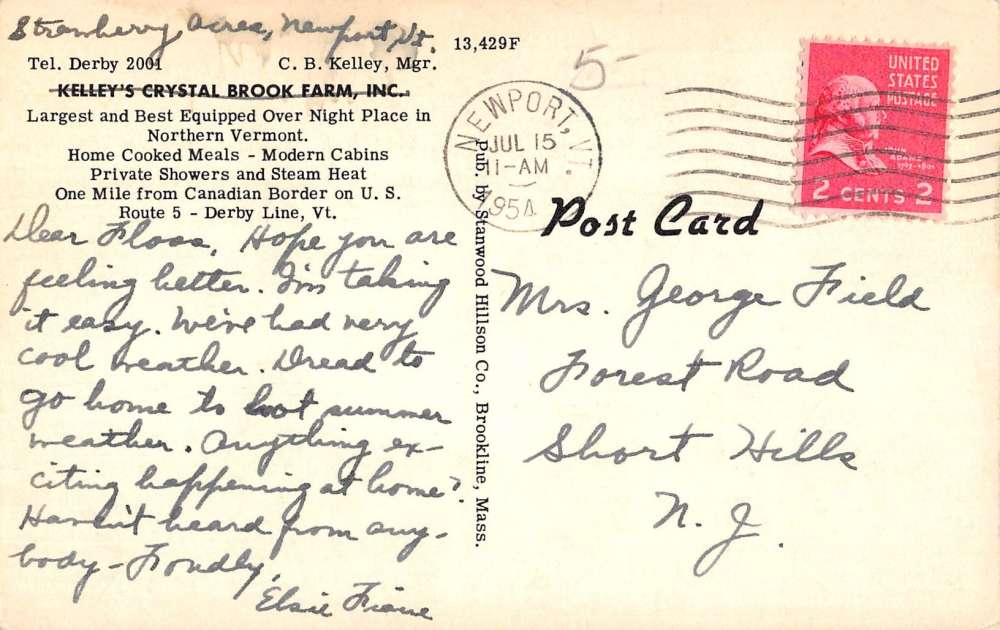 Strawberry Acres, Newport, Vt.
13,429F
5-
Tel. Derby 2001 C. B. Kelley, Mgr.
KELLEY'S CRYSTAL BROOK FARM, INC.
Largest and Best Equipped Over Night Place in
Northern Vermont.
Home Cooked Meals - Modern Cabins
Private Showers and Steam Heat
One Mile from Canadian Border on U. S.
Route 5 - Derby Line, Vt.
Dear Floss, Hope you are
feeling better. I'm taking
it easy. We've had very
cool weather. Dread to
go home to hot summer
weather. Anything ex-
citing happening at home?
Haven't heard from any-
body - Fondly,
Elsie
Pub. by Stanwood Hillson Co., Brookline, Mass.
NEWPORT, VT.
JUL 15
11-AM
1954
UNITED
STATES
POSTAGE
JOHN
ADAMS
2 CENTS 2
Post Card
Mrs. George Field
Forest Road
Short Hills
N. J.